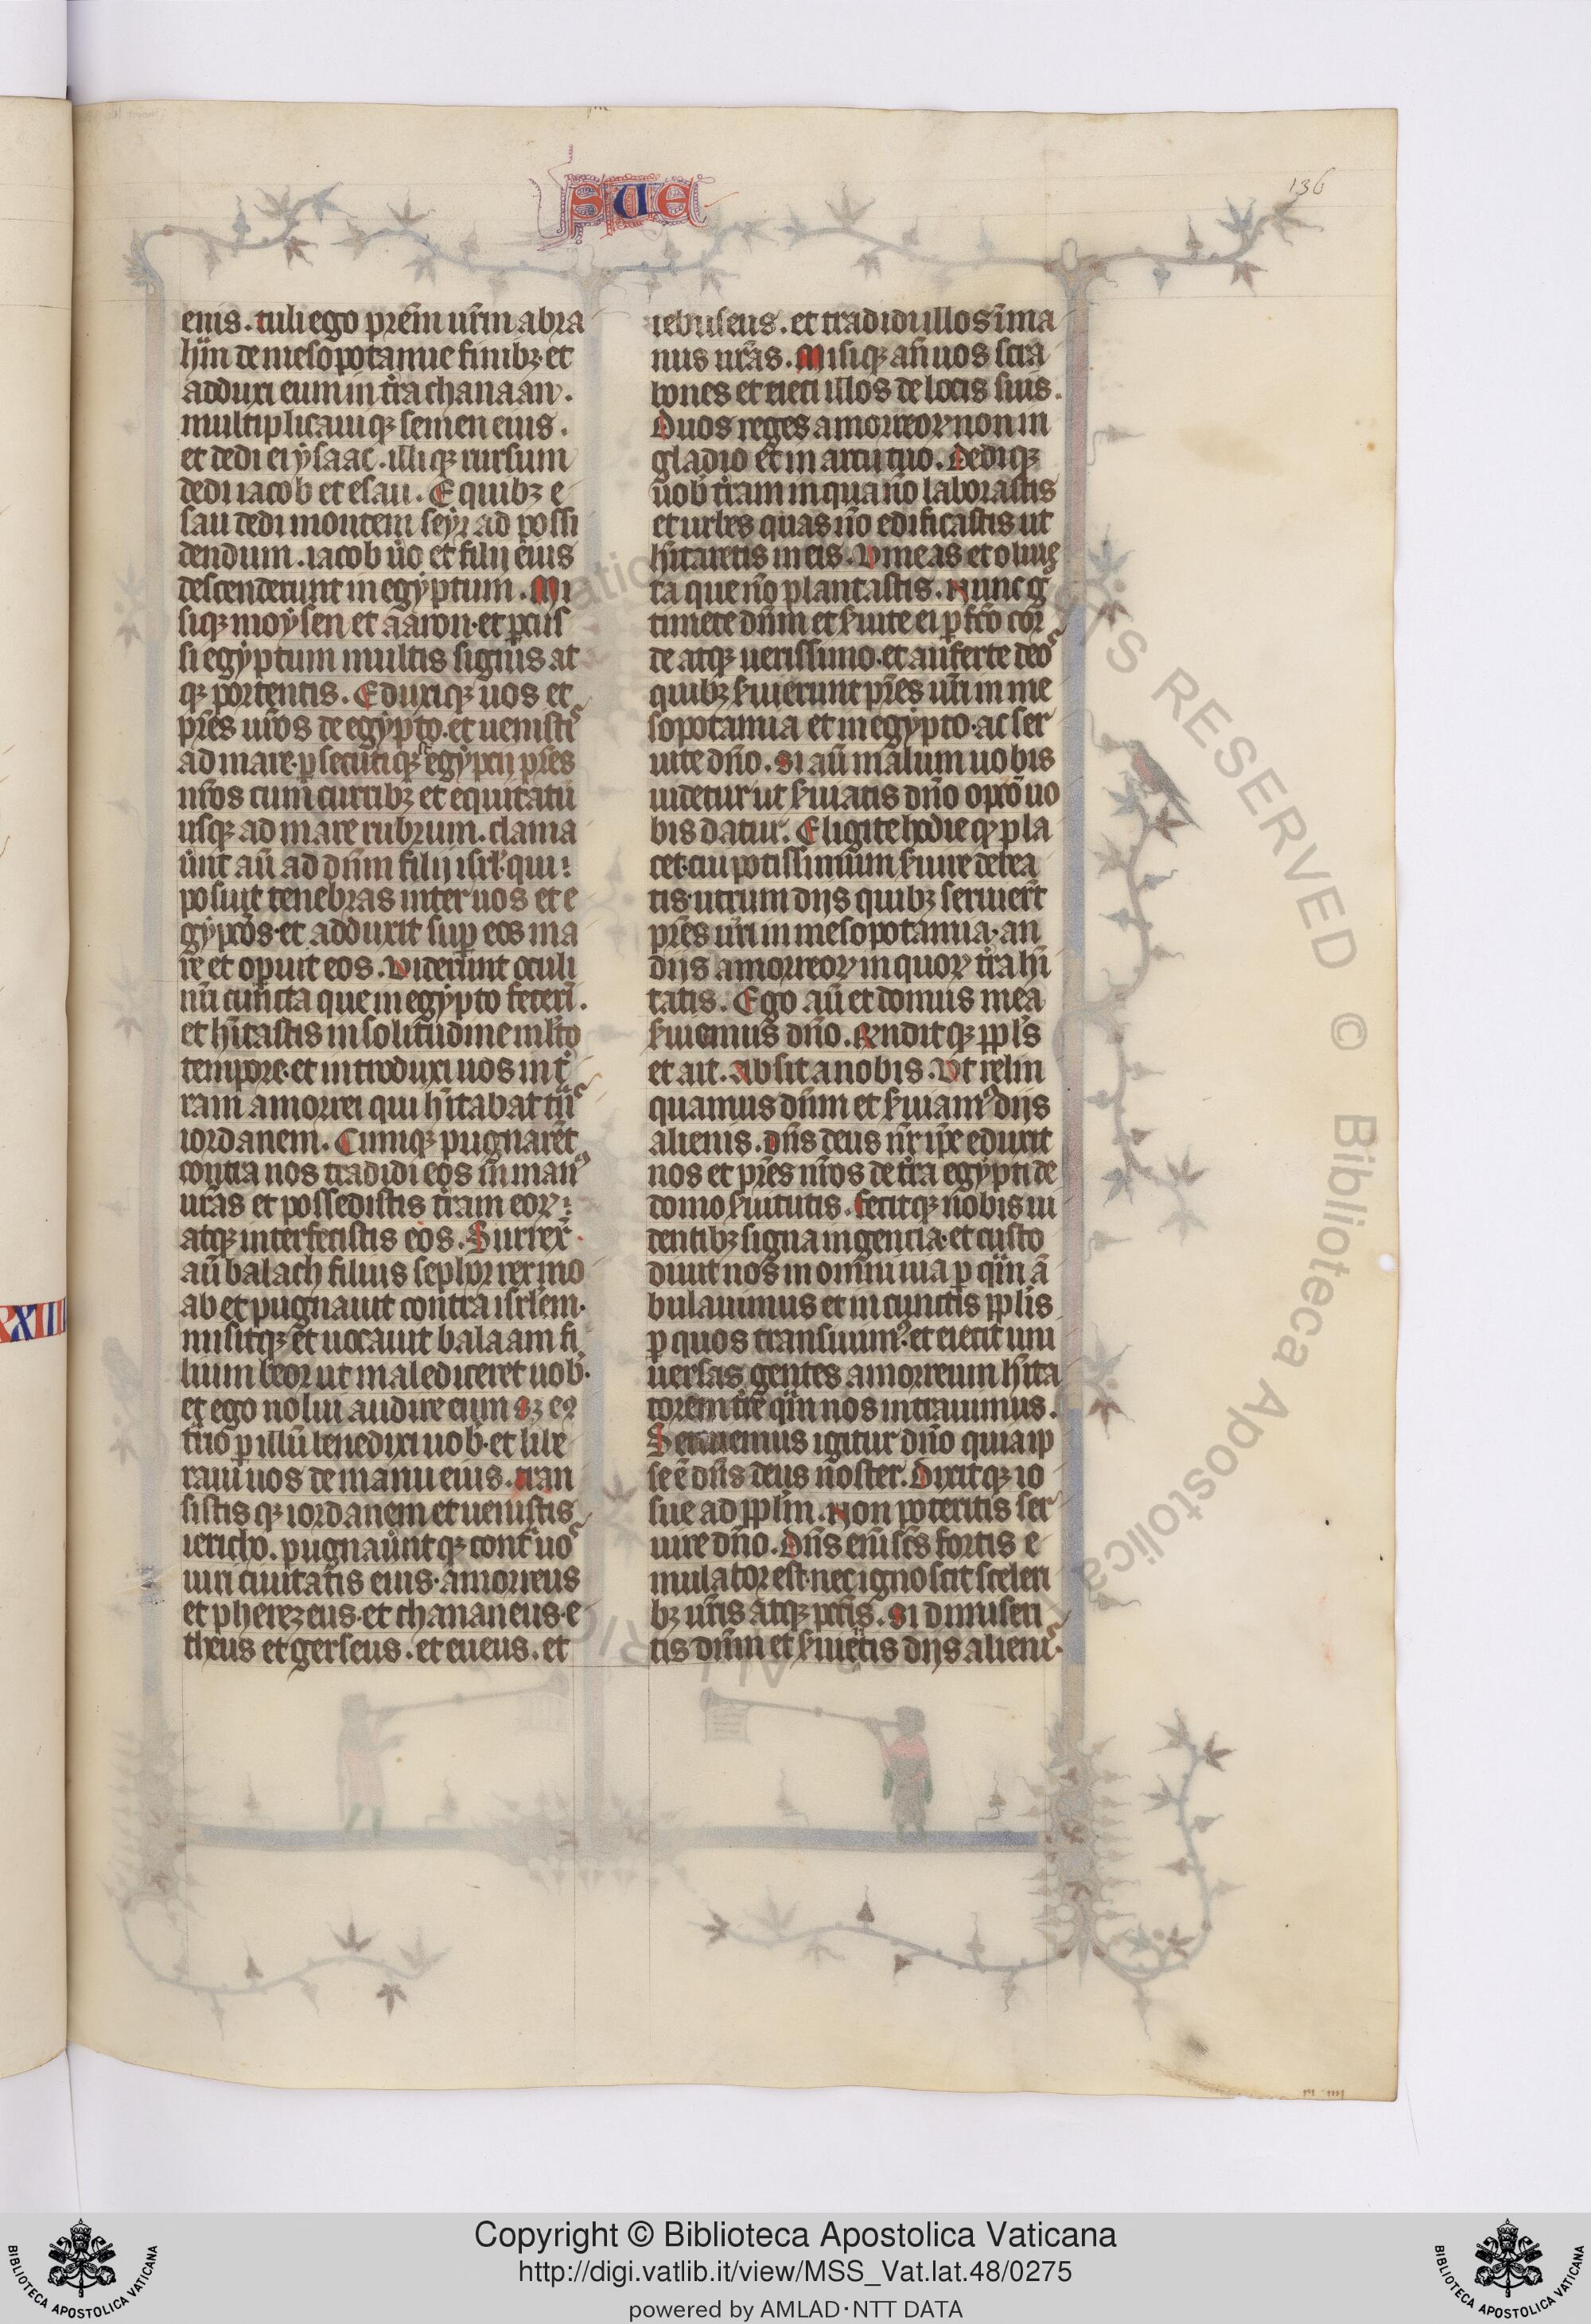 SUE
136
enis. tuli ego prēm ur̄m abra
hā̄m de mesopotamie finibꝫ. et
adduxi eum in t̄ra chanaan.
multiplicauiqꝫ semen eius.
et dedi ei ysaac. illiqꝫ rursum
dedi iacob et esau. E quibꝫ e
sau dedi montem seyr ad possi
dendum. iacob u̇o et filij eius
descenderunt in egyptum. Mi
siqꝫ moysen et aaron. et ꝑcus
si egyptum multis signis at
qꝫ portentis. Eduxiqꝫ uos et
pr̄es ur̄os de egypto. et uenistis
ad mare. ꝑsecutiqꝫ st̄ egyptij pr̄es
ur̄os cum curribꝫ et equitatu
usqꝫ ad mare rubrum. clama
u̇nt aū ad dn̄m filij isrł. qui
posuit tenebras inter uos et e
gyptōs. et adduxit suꝑ eos ma
re et opuit eos. Uiderunt oculi
ur̄i cuncta que in egypto fecer̄i.
et hītastis in solitudine mlt̄o
tempore. et introduxi uos in t̄
ram amorrei qui hītabat t̄ns
iordanem. Cumqꝫ pugnarēt
contra uos tradidi eos in man9
ur̄as et possedistis t̄ram eoꝝ
atqꝫ interfecistis eos. Surrex̄
aū balach filius sephor rex mo
ab et pugnauit contra isrłem.
misitqꝫ et uocauit balaam fi
lium beor ut malediceret uob̄.
et ego nolui audire eum sꝫ e9
t̄rio ꝑ illū benedixi uob̄. et libe
raui uos de manu eius. tran
sistisqꝫ iordanem et uenistis
iericho. pugnau̇ntqꝫ cont̄ uos
uiri ciuitatis eius. amorreus
et pherezeus. et chananeus. e
theus et gerseus. et eueus. et
iebuseus. et tradidi illos ī ma
nus ur̄as. Misiqꝫ an̄ uos scra
bones et eieci illos de locis suis.
Duos reges amorreoꝝ non in
gladio et in arcu tuo. Dediqꝫ
uob̄ t̄ram in qua nō laborastis
et urbes quas nō edificastis ut
hītaretis in eis. Uineas et oliue
ta que nō plantastis. Nunc g̊
timete dn̄m et ẜuite ei ꝑfc̄o cor
de atqꝫ uerissimo. et auferte deos
quibꝫ ẜuierunt pr̄es ur̄i in me
sopotamia et in egypto. ac ser
uite dn̄o. Si aū malum uobis
uidetur ut ẜuiatis dn̄o optō uo
bis datur. Eligite hodie qꝫ pla
cet. cui potissimum ẜuire debea
tis. utrum dijs quibꝫ seruier̄t
pr̄es ur̄i in mesopotamia. an
dijs amorreoꝝ in quoꝝ t̄ra hī
tatis. Ego aū et domus mea
ẜuiemus dn̄o. Rn̄ditqꝫ pp̄ls
et ait. Absit a nobis. Ut relin
quamus dn̄m et ẜuiam9 dijs
alienis. Dn̄s deus nr̄ ip̄e eduxit
nos et pr̄es nr̄os de t̄ra egypti de
domo ẜuitutis. fecitqꝫ nobis ui
dentibꝫ signa ingencia. et custo
diuit nos in omni uia ꝑ quā ā
bulauimus et in cunctis pp̄lis
ꝑ quos transiuim9. et eiecit uni
uersas gentes amorreum hīta
torem t̄re quā nos intrauimus.
Seruiemus igitur dn̄o quia ip
se ē dn̄s deus noster. Dixitqꝫ io
sue ad pp̄lm. Non poteritis ser
uire dn̄o. Dn̄s enī sc̄s fortis e
mulator est. nec ignoscit sceleri
bꝫ ur̄is atqꝫ pcc̄is. Si dimiseri
tis dn̄m et ẜuiētis dijs alienis.
XXIII
Copyright © Biblioteca Apostolica Vaticana
http://digi.vatlib.it/view/MSS_Vat.lat.48/0275
powered by AMLAD·NTT DATA
BIBLIOTECA APOSTOLICA VATICANA
BIBLIOTECA APOSTOLICA VATICANA